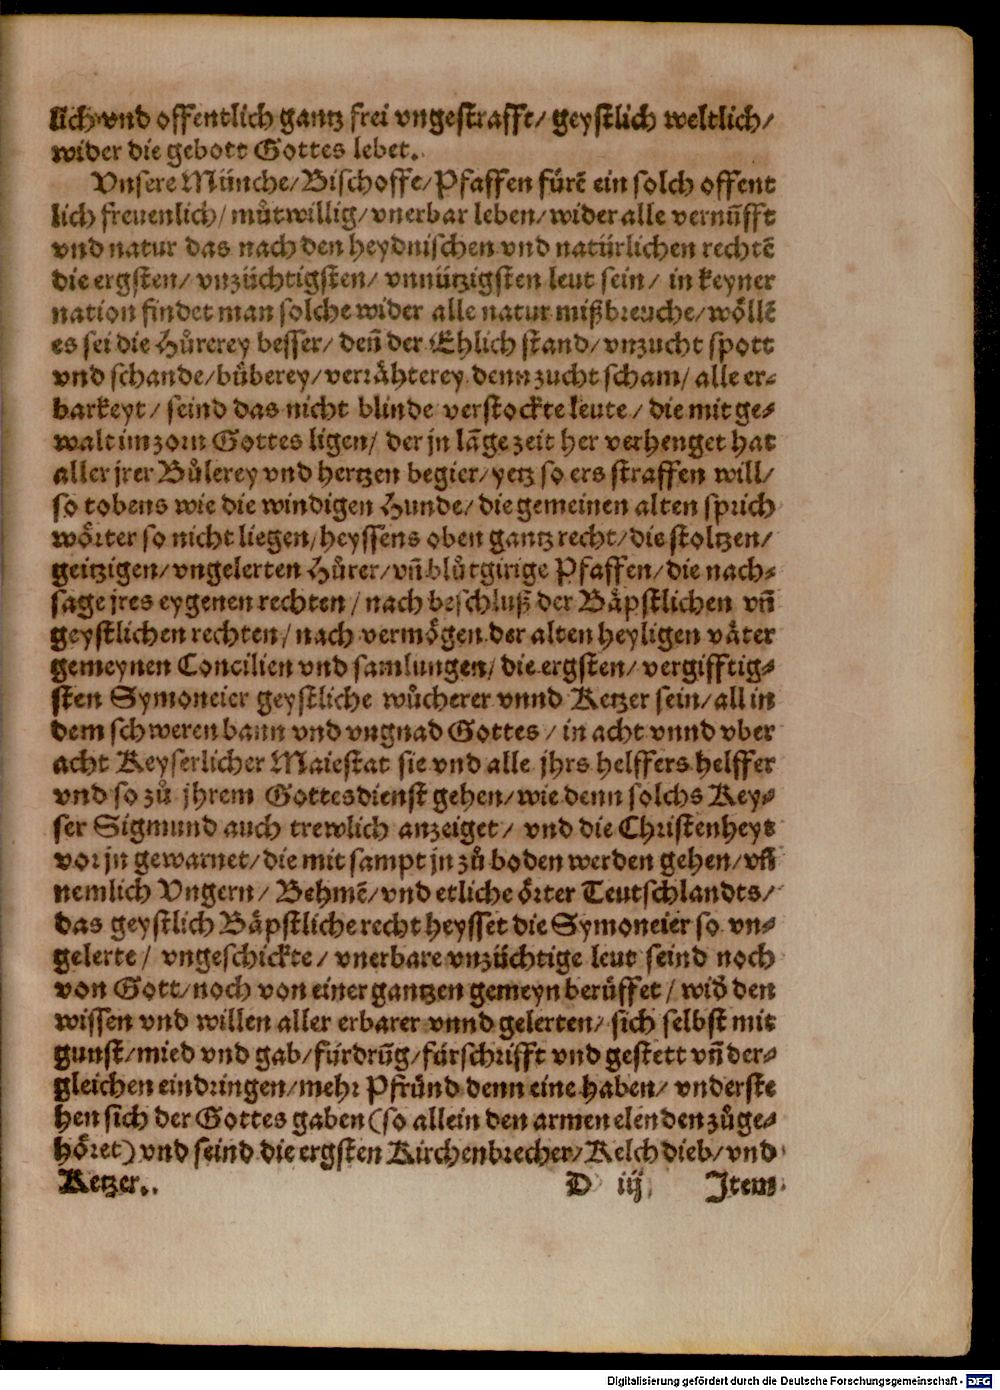 lich vnd offentlich gantz frei vngestrafft/ geystlich weltlich/
wider die gebott Gottes lebet.
Vnsere Münche/ Bischoffe/ Pfaffen fürẽ ein solch offent
lich freuenlich/ můtwillig/ vnerbar leben/ wider alle vernũfft
vnd natur das nach den heydnischen vnd natürlichen rechtẽ
die ergsten/ vnzüchtigsten/ vnnützigsten leut sein/ in keyner
nation findet man solche wider alle natur mißbreuche/ wöllẽ
es sei die Hůrerey besser/ deñ der Ehlich stand/ vnzucht spott
vnd schande/ bůberey/ verrähterey denn zucht scham/ alle er-
barkeyt/ seind das nicht blinde verstockte leute/ die mit ge-
walt im zorn Gottes ligen/ der jn lãge zeit her verhenget hat
aller jrer Bůlerey vnd hertzen begier/ yetz so ers straffen will/
so tobens wie die windigen Hunde/ die gemeinen alten sprich
wörter so nicht liegen/ heyssens oben gantz recht/ die stoltzen/
geitzigen/ vngelerten Hůrer/ vñ blůtgirige Pfaffen/ die nach-
sage jres eygenen rechten/ nach beschluß der Bäpstlichen vñ
geystlichen rechten/ nach vermögen der alten heyligen väter
gemeynen Concilien vnd samlungen/ die ergsten/ vergifftig-
sten Symoneier geystliche wůcherer vnnd Ketzer sein/ all in
dem schweren bann vnd vngnad Gottes/ in acht vnnd vber
acht Keyserlicher Maiestat sie vnd alle jhrs helffers helffer
vnd so zů jhrem Gottesdienst gehen/ wie denn solchs Key-
ser Sigmund auch trewlich anzeiget/ vnd die Christenheyt
vor jn gewarnet/ die mit sampt jn zů boden werden gehen/ vñ
nemlich Vngern/ Behmẽ/ vnd etliche örter Teutschlandts/
das geystlich Bäpstliche recht heysset die Symoneier so vn-
gelerte/ vngeschickte/ vnerbare vnzüchtige leut seind noch
von Gott/ noch von einer gantzen gemeyn berüffet/ wid̃ den
wissen vnd willen aller erbarer vnnd gelerten/ sich selbst mit
gunst/ mied vnd gab/ fürdrũg/ fürschrifft vnd gestett vñ der-
gleichen eindringen/ mehr Pfründ denn eine haben/ vnderste
hen sich der Gottes gaben (so allein den armen elenden zůge-
höret) vnd seind die ergsten Kirchenbrecher/ Kelch dieb/ vnd
Ketzer..
D iij Item
Digitalisierung gefördert durch die Deutsche Forschungsgemeinschaft - DFG